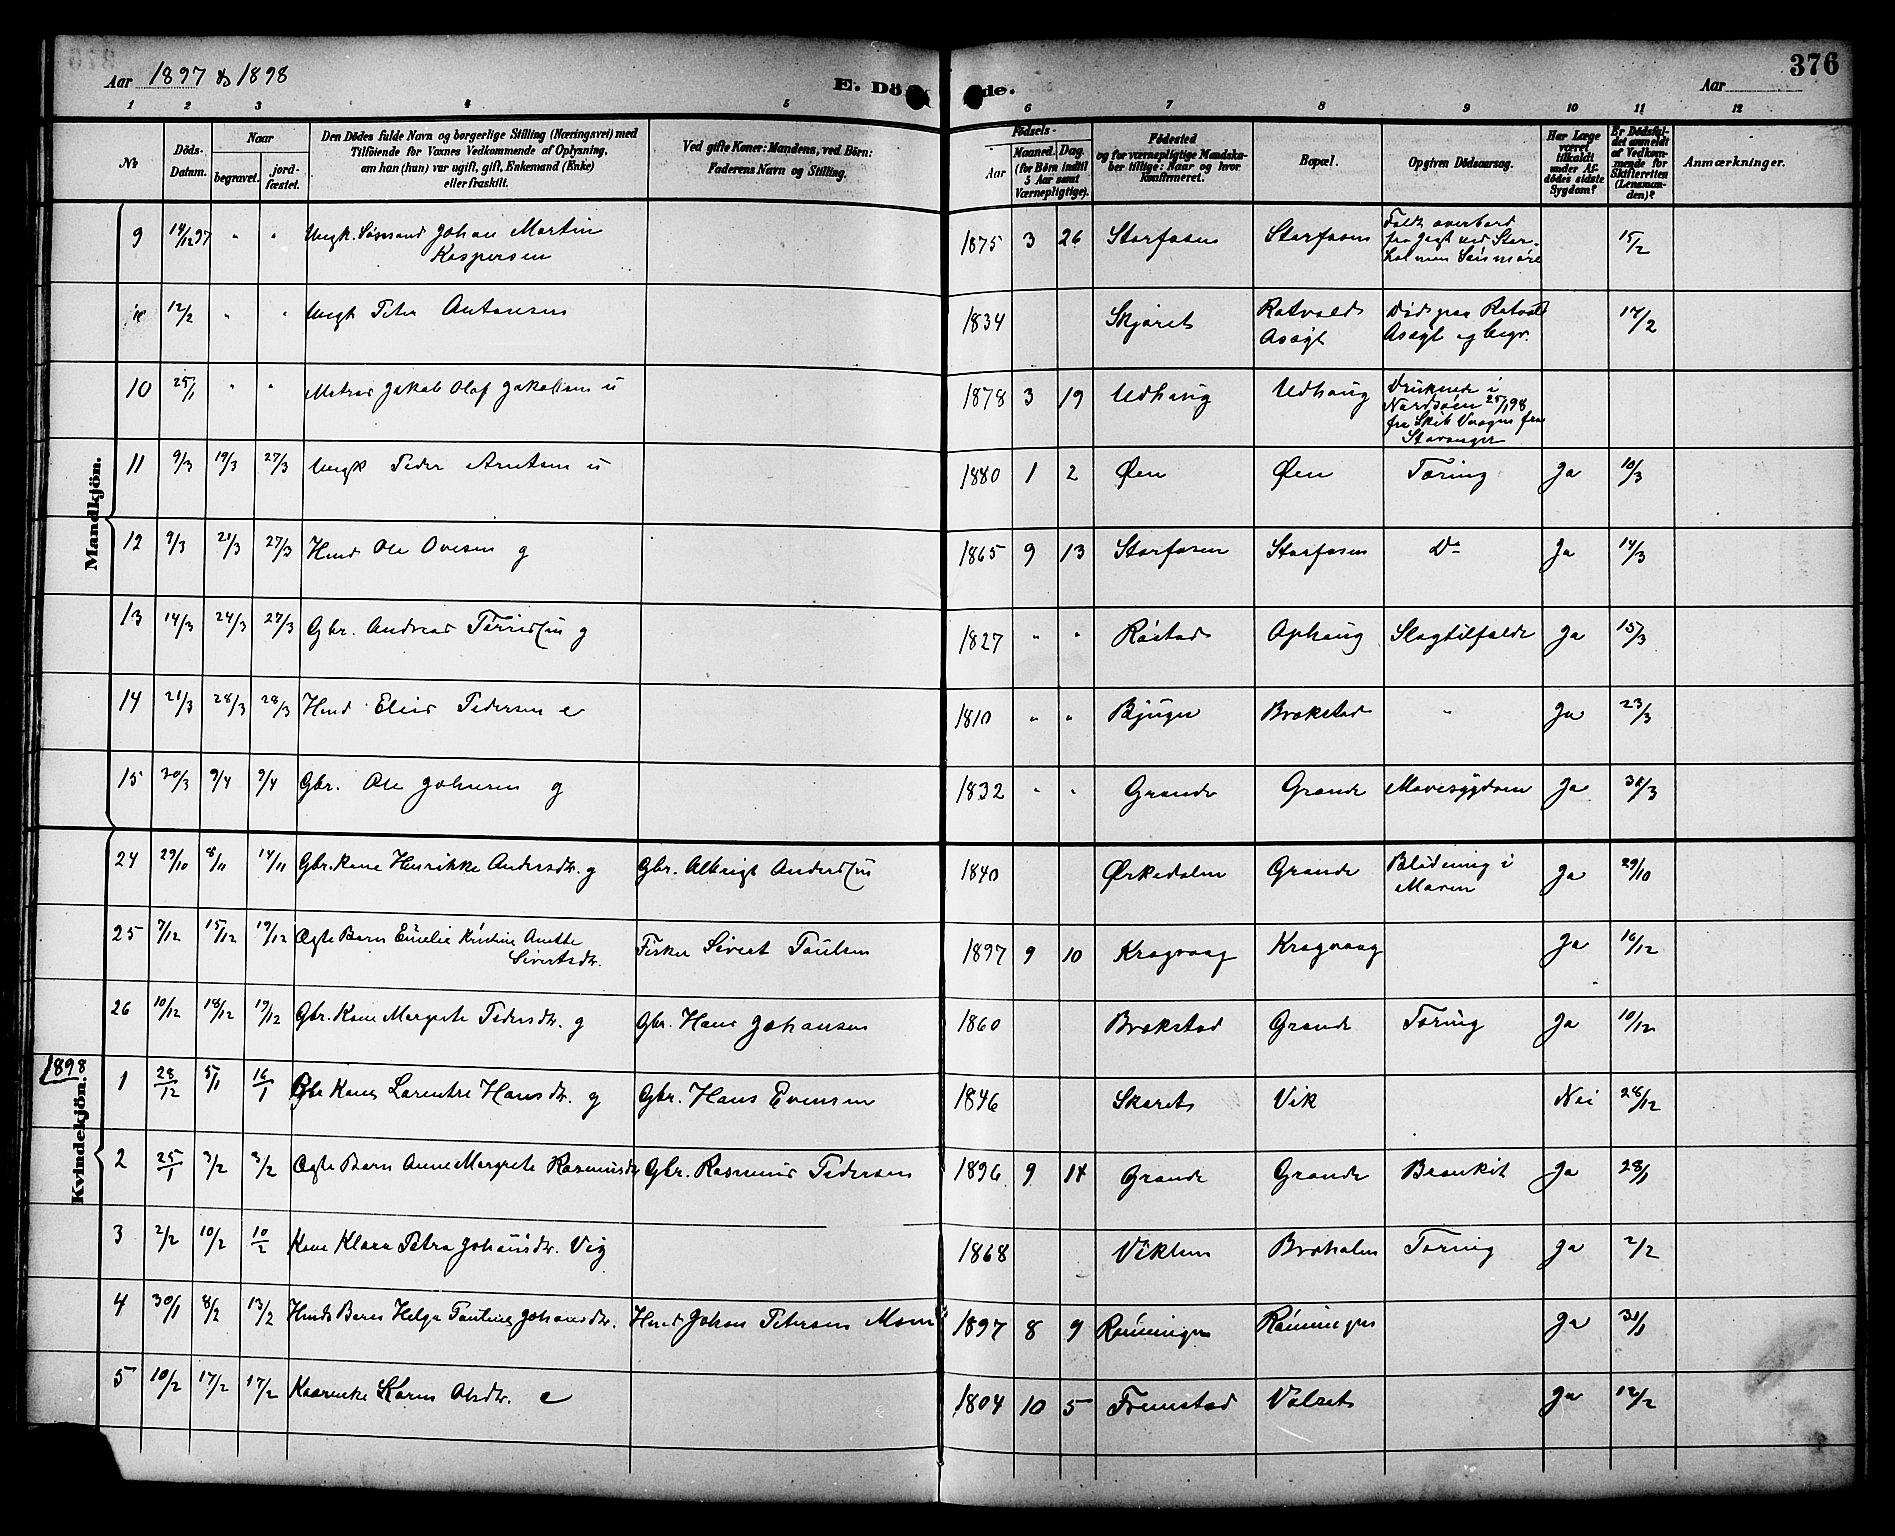 Aar 1897 & 1898
E. Dö de.
Aar
376
1 2 3 4 5 6 7 8 9 10 11 12
No
Döds-Datum.
Naar
begravet.
jord-fæstet.
Den Dödes fulde Navn og borgerlige Stilling (Næringsvei) med
Tilföiende for Voxnes Vedkommende af Oplysning,
om han (hun) var ugift, gift, Enkemand (Enke)
eller fraskilt.
Ved gifte Koner: Mandens, ved Börn:
Faderens Navn og Stilling.
Födsels-
Aar
Maaned. Dag.
(for Börn indtil
5 Aar samt
Værnepligtige).
Födested
og for værnepligtige Mandska-
ber tillige: Naar og hvor
Konfirmeret.
Bopæl.
Opgiven Dödsaarsag.
Har Læge
været
tilkaldt
under Af-
dödes sidste
Sygdom?
Er Dödsfal-
det anmeldt
af Vedkom-
mende for
Skifteretten
(Lensman-
den)?
Anmærkninger.
Mandkjön.
9 14/12 97 " " Ungk. Sømand Johan Martin Kaspersen 1875 3 26 Storfosen Storfosen Faldt overbord fra Jagt ved Stor- holmen Søndmøre 15/2
12/2 " " Ungk Peter Antonsen 1834 Skjøret Rotvolds Asögl Död paa Rotvold Asögl og begr. 17/2
10 25/1 " " Matros Jakob Olaf Jakobsen u 1878 3 19 Udhaug Udhaug Druknede i Nordsøen 25/1 98 fra Skib fra Stavanger
11 9/3 19/3 27/3 Ungk Peder Arntsen u 1880 1 2 Øen Øen Tæring Ja 10/3
12 9/3 21/3 27/3 Hmd Ole Ovesen g 1865 9 13 Storfosen Storfosen Do Ja 14/3
13 14/3 24/3 27/3 Gbr. Andreas g 1827 " " Røstad Ophaug Slagtilfælde Ja 15/3
14 21/3 28/3 28/3 Hmd Elias Pedersen e 1810 " " Bjugn Brækstad " Ja 23/3
15 30/3 9/4 9/4 Gbr. Ole Johnsen g 1832 " " Grande Grande Mavesygdom Ja 31/3
24 29/10 8/11 14/11 Gbr. Kone Henrikke Andersdtr. g Gbr. Albrigt Andersen 1840 Ørkedalen Grande Blødning i Maven Ja 29/10
25 7/12 15/12 19/12 Ægte Barn Emelie Kristine Anette Sivertsdtr. Fisker Sivert Paulsen 1897 9 10 Kragvaag Kragvaag Ja 16/12
26 10/12 18/12 19/12 Gbr. Kone Margrete Pedersdtr. g Gbr. Hans Johansen 1860 Brækstad Grande Tæring Ja 10/12
1898
Kvindekjön.
1 28/12 5/1 16/1 Gbr Kone Lorentse Hansdtr. g Gbr. Hans Evensen 1846 Skaret Vik Nei 28/12
2 25/1 3/2 3/2 Ægte Barn Anne Margrete Rasmusdtr Gbr. Rasmus Pedersen 1896 9 14 Grande Grande Bronkit Ja 28/1
3 2/2 10/2 10/2 Kone Klara Petra Johansdtr. Vig 1868 Viklem Brøholen Tæring Ja 2/2
4 30/1 8/2 13/2 Hmds Barn Helga Pauline Johansdtr. Hmd Johan Petersen Moen 1897 8 9 Rønningen Rønningen Ja 31/1
5 10/2 17/2 17/2 Kaarenke Karen Olsdtr. e 1804 10 5 Fremstad Valset Ja 12/2